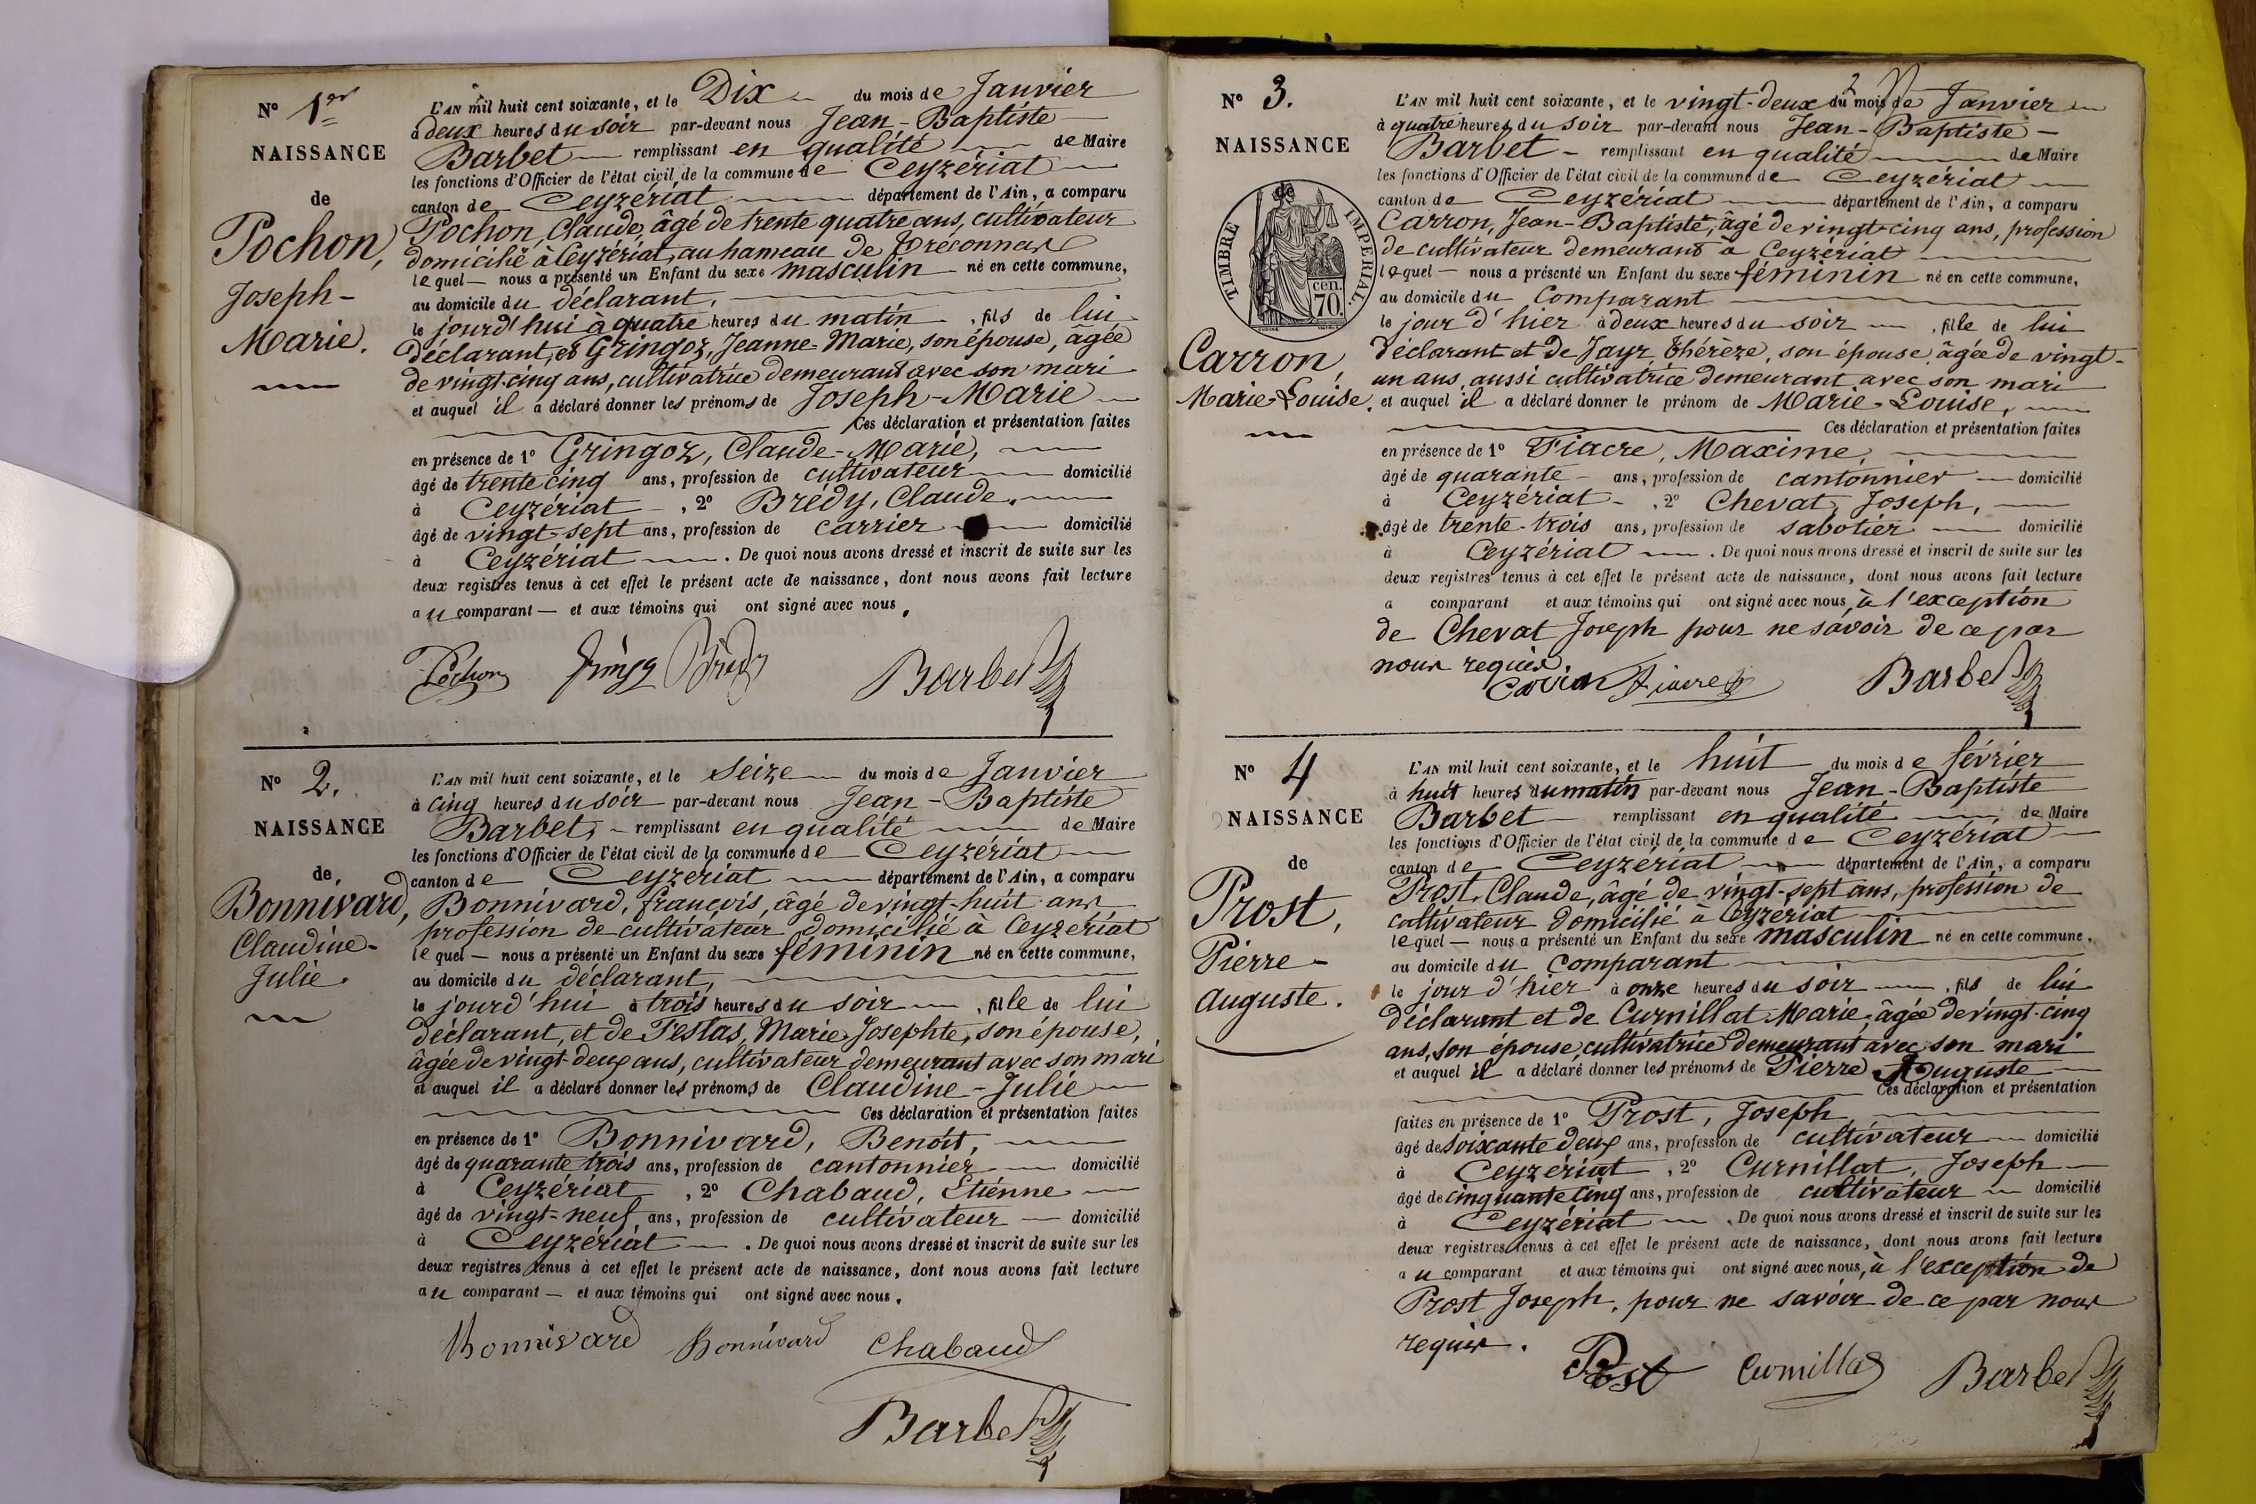 N° 1er
NAISSANCE
de
Pochon,
Joseph-
Marie.
L'AN mil huit cent soixante, et le Dix du mois de Janvier
à deux heures du soir par-devant nous Jean-Baptiste
Barbet remplissant en qualité de Maire
les fonctions d'Officier de l'état civil de la commune de Ceyzériat
canton de Ceyzériat département de l'Ain, a comparu
Pochon, Claude, âgé de trente quatre ans, cultivateur
domicilié à Ceyzériat, au hameau de
lequel — nous a présenté un Enfant du sexe masculin né en cette commune,
au domicile du déclarant,
le jourd'hui à quatre heures du matin, fils de lui
déclarant, et Gringoz, Jeanne-Marie, son épouse, âgée
de vingt-cinq ans, cultivatrice demeurant avec son mari
et auquel il a déclaré donner les prénoms de Joseph-Marie
Ces déclaration et présentation faites
en présence de 1° Gringoz, Claude-Marie,
âgé de trente cinq ans, profession de cultivateur domicilié
à Ceyzériat, 2° Brédy, Claude,
âgé de vingt-sept ans, profession de carrier domicilié
à Ceyzériat. De quoi nous avons dressé et inscrit de suite sur les
deux registres tenus à cet effet le présent acte de naissance, dont nous avons fait lecture
au comparant — et aux témoins qui ont signé avec nous.
Pochon Gringoz Brédy Barbet
N° 2.
NAISSANCE
de
Bonnivard,
Claudine-
Julie.
L'AN mil huit cent soixante, et le Seize du mois de Janvier
à cinq heures du soir par-devant nous Jean-Baptiste
Barbet, remplissant en qualité de Maire
les fonctions d'Officier de l'état civil de la commune de Ceyzériat
canton de Ceyzériat département de l'Ain, a comparu
Bonnivard, françois, âgé de vingt-huit ans
profession de cultivateur domicilié à Ceyzériat
lequel — nous a présenté un Enfant du sexe féminin né en cette commune,
au domicile du déclarant,
le jourd'hui à trois heures du soir, fille de lui
déclarant, et de Testas, Marie Josephte, son épouse,
âgée de vingt-deux ans, cultivateur demeurant avec son mari
et auquel il a déclaré donner les prénoms de Claudine-Julie
Ces déclaration et présentation faites
en présence de 1° Bonnivard, Benoît,
âgé de quarante trois ans, profession de cantonnier domicilié
à Ceyzériat, 2° Chabaud, Etienne
âgé de vingt-neuf ans, profession de cultivateur domicilié
à Ceyzériat. De quoi nous avons dressé et inscrit de suite sur les
deux registres tenus à cet effet le présent acte de naissance, dont nous avons fait lecture
au comparant — et aux témoins qui ont signé avec nous.
Bonnivard Bonnivard Chabaud
Barbet
N° 3.
NAISSANCE
de
TIMBRE IMPÉRIAL.
70. cen.
Carron,
Marie-Louise.
L'AN mil huit cent soixante, et le vingt-deux du mois de Janvier
à quatre heures du soir par-devant nous Jean-Baptiste
Barbet remplissant en qualité de Maire
les fonctions d'Officier de l'état civil de la commune de Ceyzériat
canton de Ceyzériat département de l'Ain, a comparu
Carron, Jean-Baptiste, âgé de vingt-cinq ans, profession
de cultivateur demeurant à Ceyzériat
lequel — nous a présenté un Enfant du sexe féminin né en cette commune,
au domicile du Comparant
le jour d'hier à deux heures du soir, fille de lui
déclarant et de Jayr Thérèze, son épouse, âgée de vingt-
un ans, aussi cultivatrice demeurant avec son mari
et auquel il a déclaré donner le prénom de Marie-Louise,
Ces déclaration et présentation faites
en présence de 1° Fiacre, Maxime,
âgé de quarante ans, profession de cantonnier domicilié
à Ceyzériat, 2° Chevat, Joseph,
âgé de trente-trois ans, profession de sabotier domicilié
à Ceyzériat. De quoi nous avons dressé et inscrit de suite sur les
deux registres tenus à cet effet le présent acte de naissance, dont nous avons fait lecture
a comparant et aux témoins qui ont signé avec nous, à l'exception
de Chevat Joseph pour ne savoir de ce par
nous requis.
Fiacre Barbet
N° 4
NAISSANCE
de
Prost,
Pierre-
Auguste.
L'AN mil huit cent soixante, et le huit du mois de février
à huit heures du matin par-devant nous Jean-Baptiste
Barbet remplissant en qualité de Maire
les fonctions d'Officier de l'état civil de la commune de Ceyzériat
canton de Ceyzériat département de l'Ain, a comparu
Prost, Claude, âgé de vingt-sept ans, profession de
cultivateur domicilié à Ceyzériat
lequel — nous a présenté un Enfant du sexe masculin né en cette commune,
au domicile du comparant
le jour d'hier à onze heures du soir, fils de lui
déclarant et de Curnillat Marie, âgée de vingt-cinq
ans, son épouse, cultivatrice demeurant avec son mari
et auquel il a déclaré donner les prénoms de Pierre Auguste
Ces déclaration et présentation
faites en présence de 1° Prost, Joseph
âgé de soixante deux ans, profession de cultivateur domicilié
à Ceyzériat, 2° Curnillat, Joseph
âgé de cinquante cinq ans, profession de cultivateur domicilié
à Ceyzériat. De quoi nous avons dressé et inscrit de suite sur les
deux registres tenus à cet effet le présent acte de naissance, dont nous avons fait lecture
au comparant et aux témoins qui ont signé avec nous, à l'exception de
Prost Joseph, pour ne savoir de ce par nous
requis.
Prost Curnillat Barbet